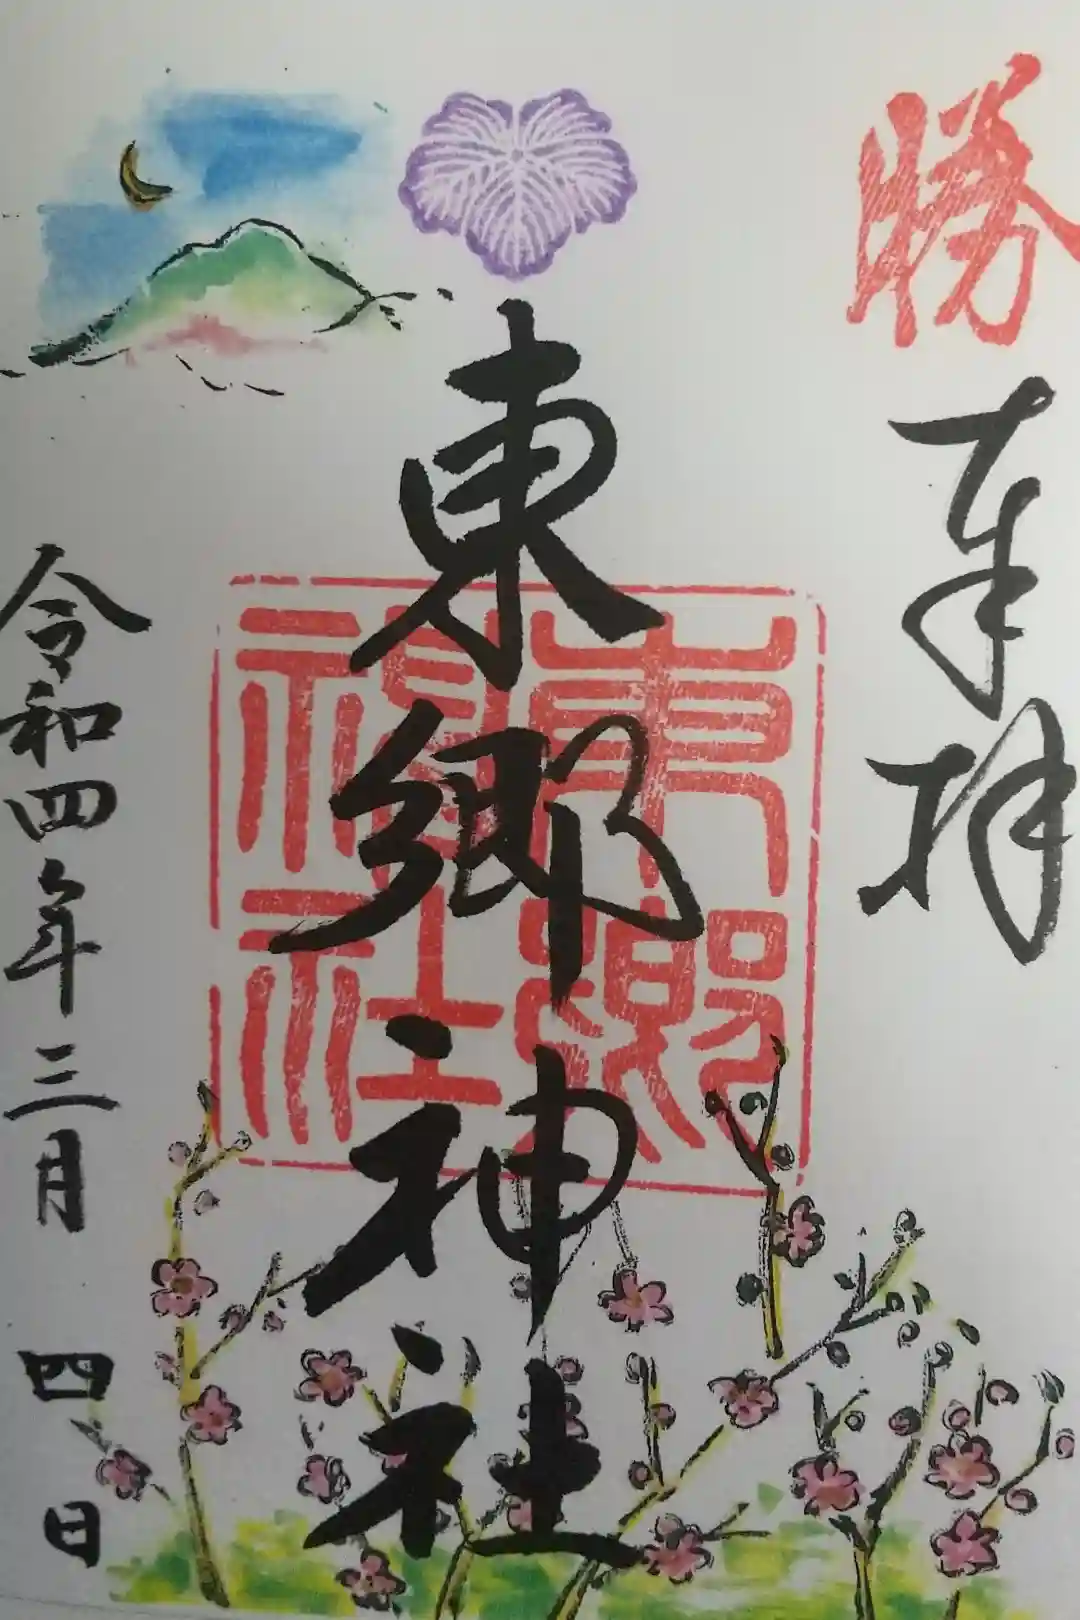 勝
奉拝
東郷神社
東郷神社
令和四年三月四日